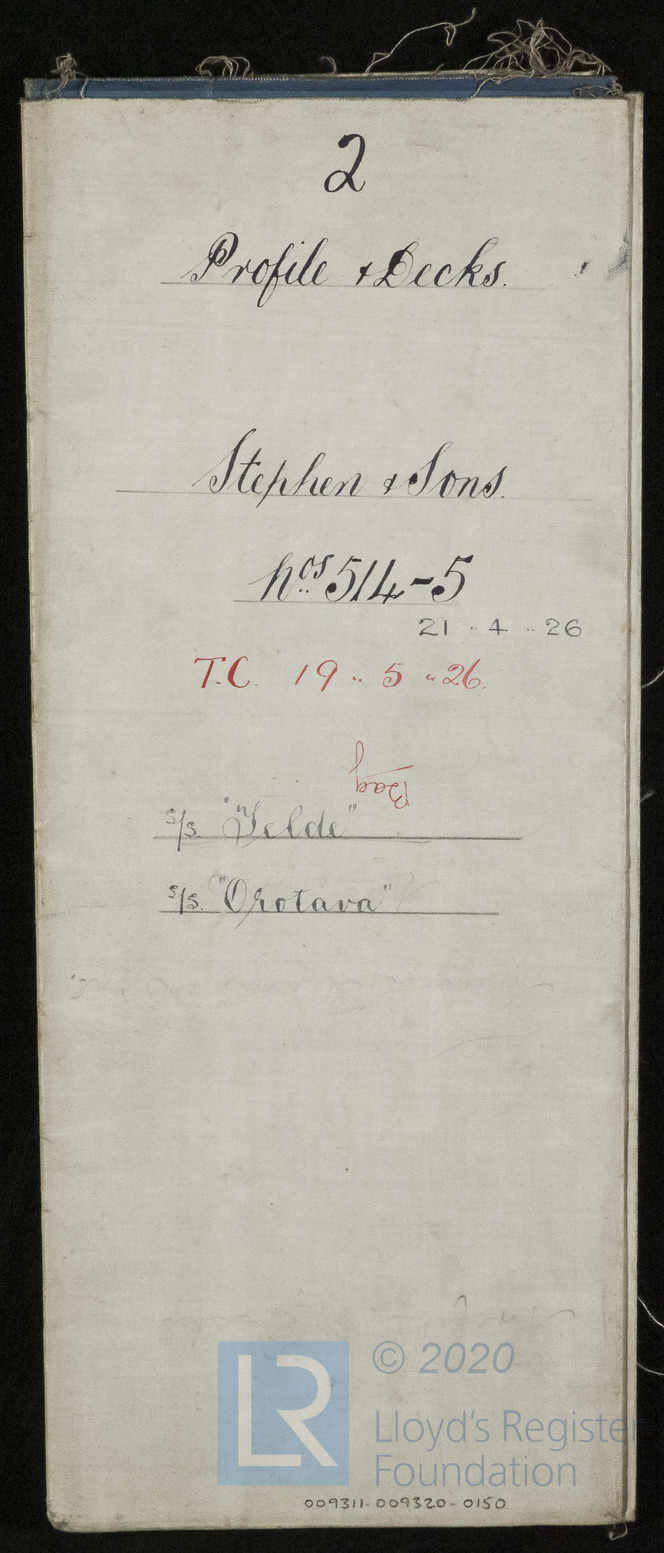 2
Profile & Decks.
Stephen & Sons.
Nos 514-5
21 .. 4 .. 26
T.C. 19 .. 5 .. 26.
Bag
s/s. "Telde"
s/s. "Orotava"
LR
© 2020
Lloyd's Register
Foundation
009311-009320-0150